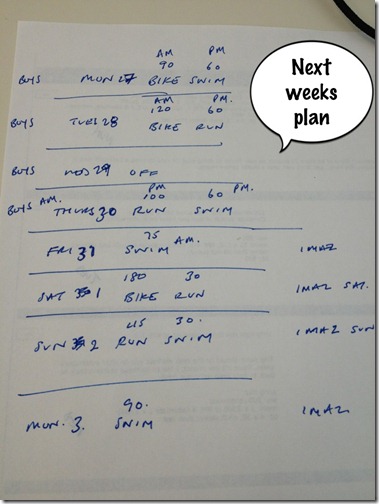 Next
weeks
plan
AM PM
90 60
BUYS MON 27 BIKE SWIM
AM PM.
120 60
BUYS TUES 28 BIKE RUN
BUYS WED 29 OFF
PM PM.
100 60
BUYS AM. THURS 30 RUN SWIM
75 AM.
FRI 31 SWIM IMAZ
180 30
SAT 1 BIKE RUN IMAZ SAT.
45 30.
SUN 2 RUN SWIM IMAZ SUN
90.
MON. 3. SWIM IMAZ